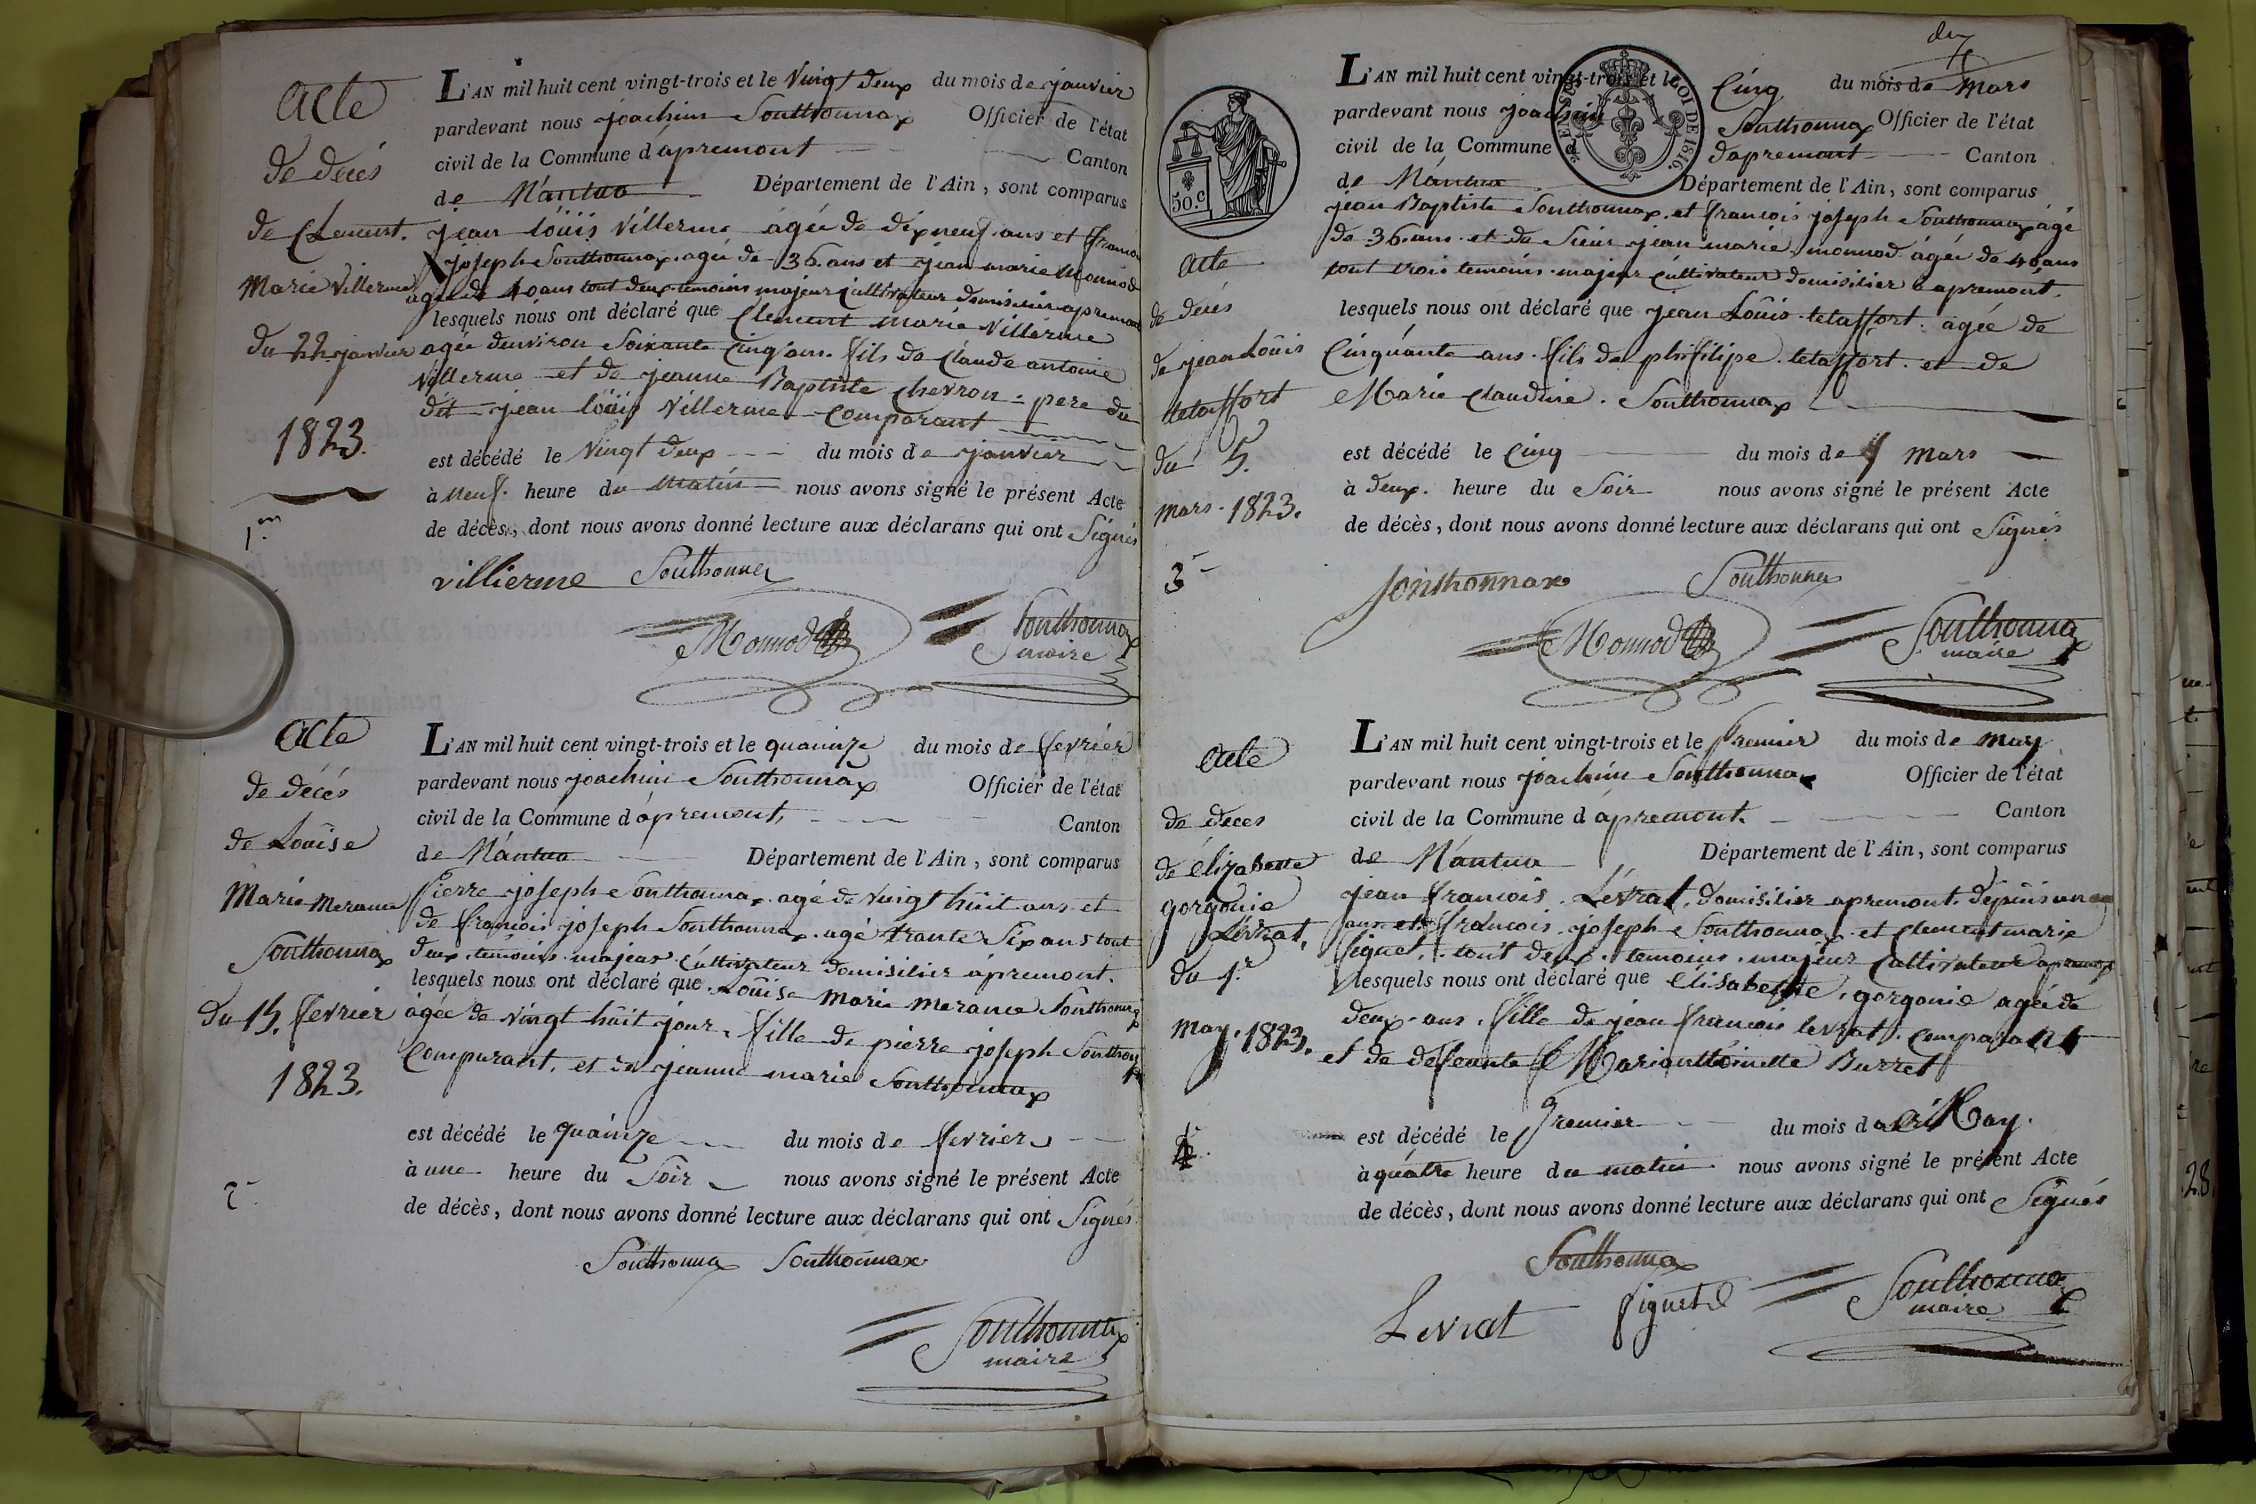 Acte
de décés
de Clement.
Marie Villerme
du 22 janvier
1823.
1.er
L'AN mil huit cent vingt-trois et le Vingt deux du mois de janvier
pardevant nous joachim Sonthonnax Officier de l'état
civil de la Commune d'apremont Canton
de Nantua Département de l'Ain, sont comparus
jean löüis Villerme agée de dix neuf ans et francois
joseph Sonthonnax agée de 36 ans et jean marie Monnod
agée de 40 ans tout deux temoins majeur Cultivateur domicilier apremont
lesquels nous ont déclaré que Clement marie Villerme
agée d'environ Soixante Cinq ans. fils de Claude antoine
Villerme et de jeanne Baptiste Chevron = pere du
dit jean löüis Villerme comparant
est décédé le Vingt deux du mois de janvier
à Neuf. heure du Matin nous avons signé le présent Acte
de décès, dont nous avons donné lecture aux déclarans qui ont Signés
villierme Sonthonnax
Monnod Sonthonnax
maire
Acte
de décés
de Loüise
Marie Merance
Sonthonnax
du 15. fevrier
1823.
2
L'AN mil huit cent vingt-trois et le quainze du mois de fevrier
pardevant nous joachim Sonthonnax Officier de l'état
civil de la Commune d'apremont, Canton
de Nantua Département de l'Ain, sont comparus
Pierre joseph Sonthonnax. agé de Vingt hüit ans et
de francois joseph Sonthonnax. agé trante Six ans tout
deux temoins majeur Cultivateur domisilier apremont.
lesquels nous ont déclaré que Loüise Marie Merance Sonthonnax
agée de vingt hüit jour, fille de pierre joseph Sonthonnax
Comparant, et de jeanne marie Sonthonnax
est décédé le quainze du mois de fevrier
à une heure du Soir nous avons signé le présent Acte
de décès, dont nous avons donné lecture aux déclarans qui ont Signés
Sonthonnax Sonthonnax
Sonthonnax
maire
50.c
LOI DE 1816.
Acte
de décés
de jean Loüis
tetaffort
du 5.
mars. 1823.
3
L'AN mil huit cent vingt-trois et le Cinq du mois de Mars
pardevant nous joachim Sonthonnax Officier de l'état
civil de la Commune d'apremont Canton
de Nantua Département de l'Ain, sont comparus
jean Baptiste Sonthonnax. et francois joseph Sonthonnax agé
de 36 ans et de Sieur jean marie monnod agée de 40 ans
tout trois temoins majeur Cultivateur domisilier apremont.
lesquels nous ont déclaré que jean Loüis tetaffort. agée de
Cinquante ans. fils de phifilipe. tetaffort. et de
Marie claudine. Sonthonnax
est décédé le Cinq du mois de Mars
à deux. heure du Soir nous avons signé le présent Acte
de décès, dont nous avons donné lecture aux déclarans qui ont Signés
Sonthonnax Sonthonnax
Monnod Sonthonnax
maire
Acte
de deces
de élizabette
gorgonie
Levrat,
du 1.r
may. 1823.
4
L'AN mil huit cent vingt-trois et le Premier du mois de may
pardevant nous joachim Sonthonnax Officier de l'état
civil de la Commune d'apremont. Canton
de Nantua Département de l'Ain, sont comparus
jean francois. Levrat. domisilier apremont. depüis un
ans et francois. joseph Sonthonnax. et Clement marie
Piquet. tout deux. temoins. majeur Cultivateur apremont
lesquels nous ont déclaré que élisabette. gorgonie agée de
deux ans. fille de jean francois levrat. comparant
et de deffeunte Marianttoinette Burret
est décédé le Premier du mois de May.
à quatre heure du matin nous avons signé le présent Acte
de décès, dont nous avons donné lecture aux déclarans qui ont Signés
Sonthonnax
Levrat Piquet Sonthonnax
maire
28.